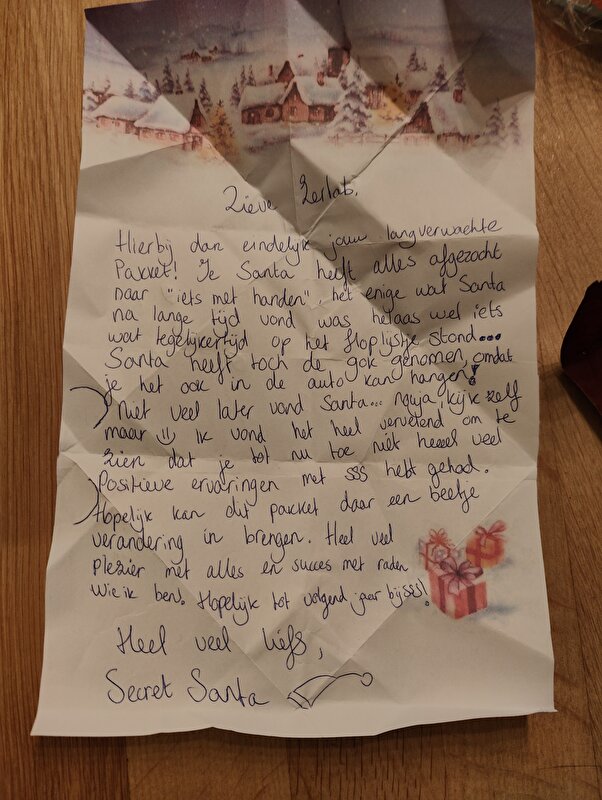 Lieve Zerlot,
Hierbij dan eindelijk jouw langverwachte
Pakket! Je Santa heeft alles afgezocht
naar "iets met handen", het enige wat Santa
na lange tijd vond was helaas wel iets
wat tegelijkertijd op het floplijstje stond...
Santa heeft toch de gok genomen, omdat
je het ook in de auto kan hangen!
Niet veel later vond Santa... nouja, kijk zelf
maar :) Ik vond het heel vervelend om te
zien dat je tot nu toe niet heeel veel
Positieve ervaringen met SSS hebt gehad.
Hopelijk kan dit pakket daar een beetje
verandering in brengen. Heel veel
plezier met alles en succes met raden
wie ik ben! Hopelijk tot volgend jaar bij SSS!
Heel veel liefs,
Secret Santa